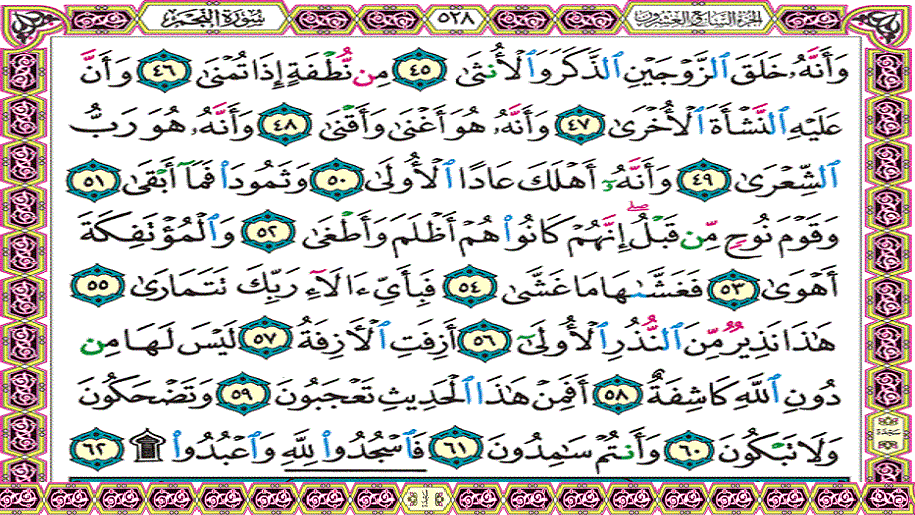 الجزء السابع والعشرون ٥٢٨ سورة النجم
وَأَنَّهُۥ خَلَقَ ٱلزَّوْجَيْنِ ٱلذَّكَرَ وَٱلْأُنثَىٰ ٤٥ مِن نُّطْفَةٍ إِذَا تُمْنَىٰ ٤٦ وَأَنَّ
عَلَيْهِ ٱلنَّشْأَةَ ٱلْأُخْرَىٰ ٤٧ وَأَنَّهُۥ هُوَ أَغْنَىٰ وَأَقْنَىٰ ٤٨ وَأَنَّهُۥ هُوَ رَبُّ
ٱلشِّعْرَىٰ ٤٩ وَأَنَّهُۥٓ أَهْلَكَ عَادًا ٱلْأُولَىٰ ٥٠ وَثَمُودَا۟ فَمَآ أَبْقَىٰ ٥١
وَقَوْمَ نُوحٍ مِّن قَبْلُ ۖ إِنَّهُمْ كَانُوا۟ هُمْ أَظْلَمَ وَأَطْغَىٰ ٥٢ وَٱلْمُؤْتَفِكَةَ
أَهْوَىٰ ٥٣ فَغَشَّىٰهَا مَا غَشَّىٰ ٥٤ فَبِأَىِّ ءَالَآءِ رَبِّكَ تَتَمَارَىٰ ٥٥
هَٰذَا نَذِيرٌ مِّنَ ٱلنُّذُرِ ٱلْأُولَىٰٓ ٥٦ أَزِفَتِ ٱلْأَزِفَةُ ٥٧ لَيْسَ لَهَا مِن
دُونِ ٱللَّهِ كَاشِفَةٌ ٥٨ أَفَمِنْ هَٰذَا ٱلْحَدِيثِ تَعْجَبُونَ ٥٩ وَتَضْحَكُونَ
وَلَا تَبْكُونَ ٦٠ وَأَنتُمْ سَٰمِدُونَ ٦١ فَٱسْجُدُوا۟ لِلَّهِ وَٱعْبُدُوا۟ ۩ ٦٢
سجدة